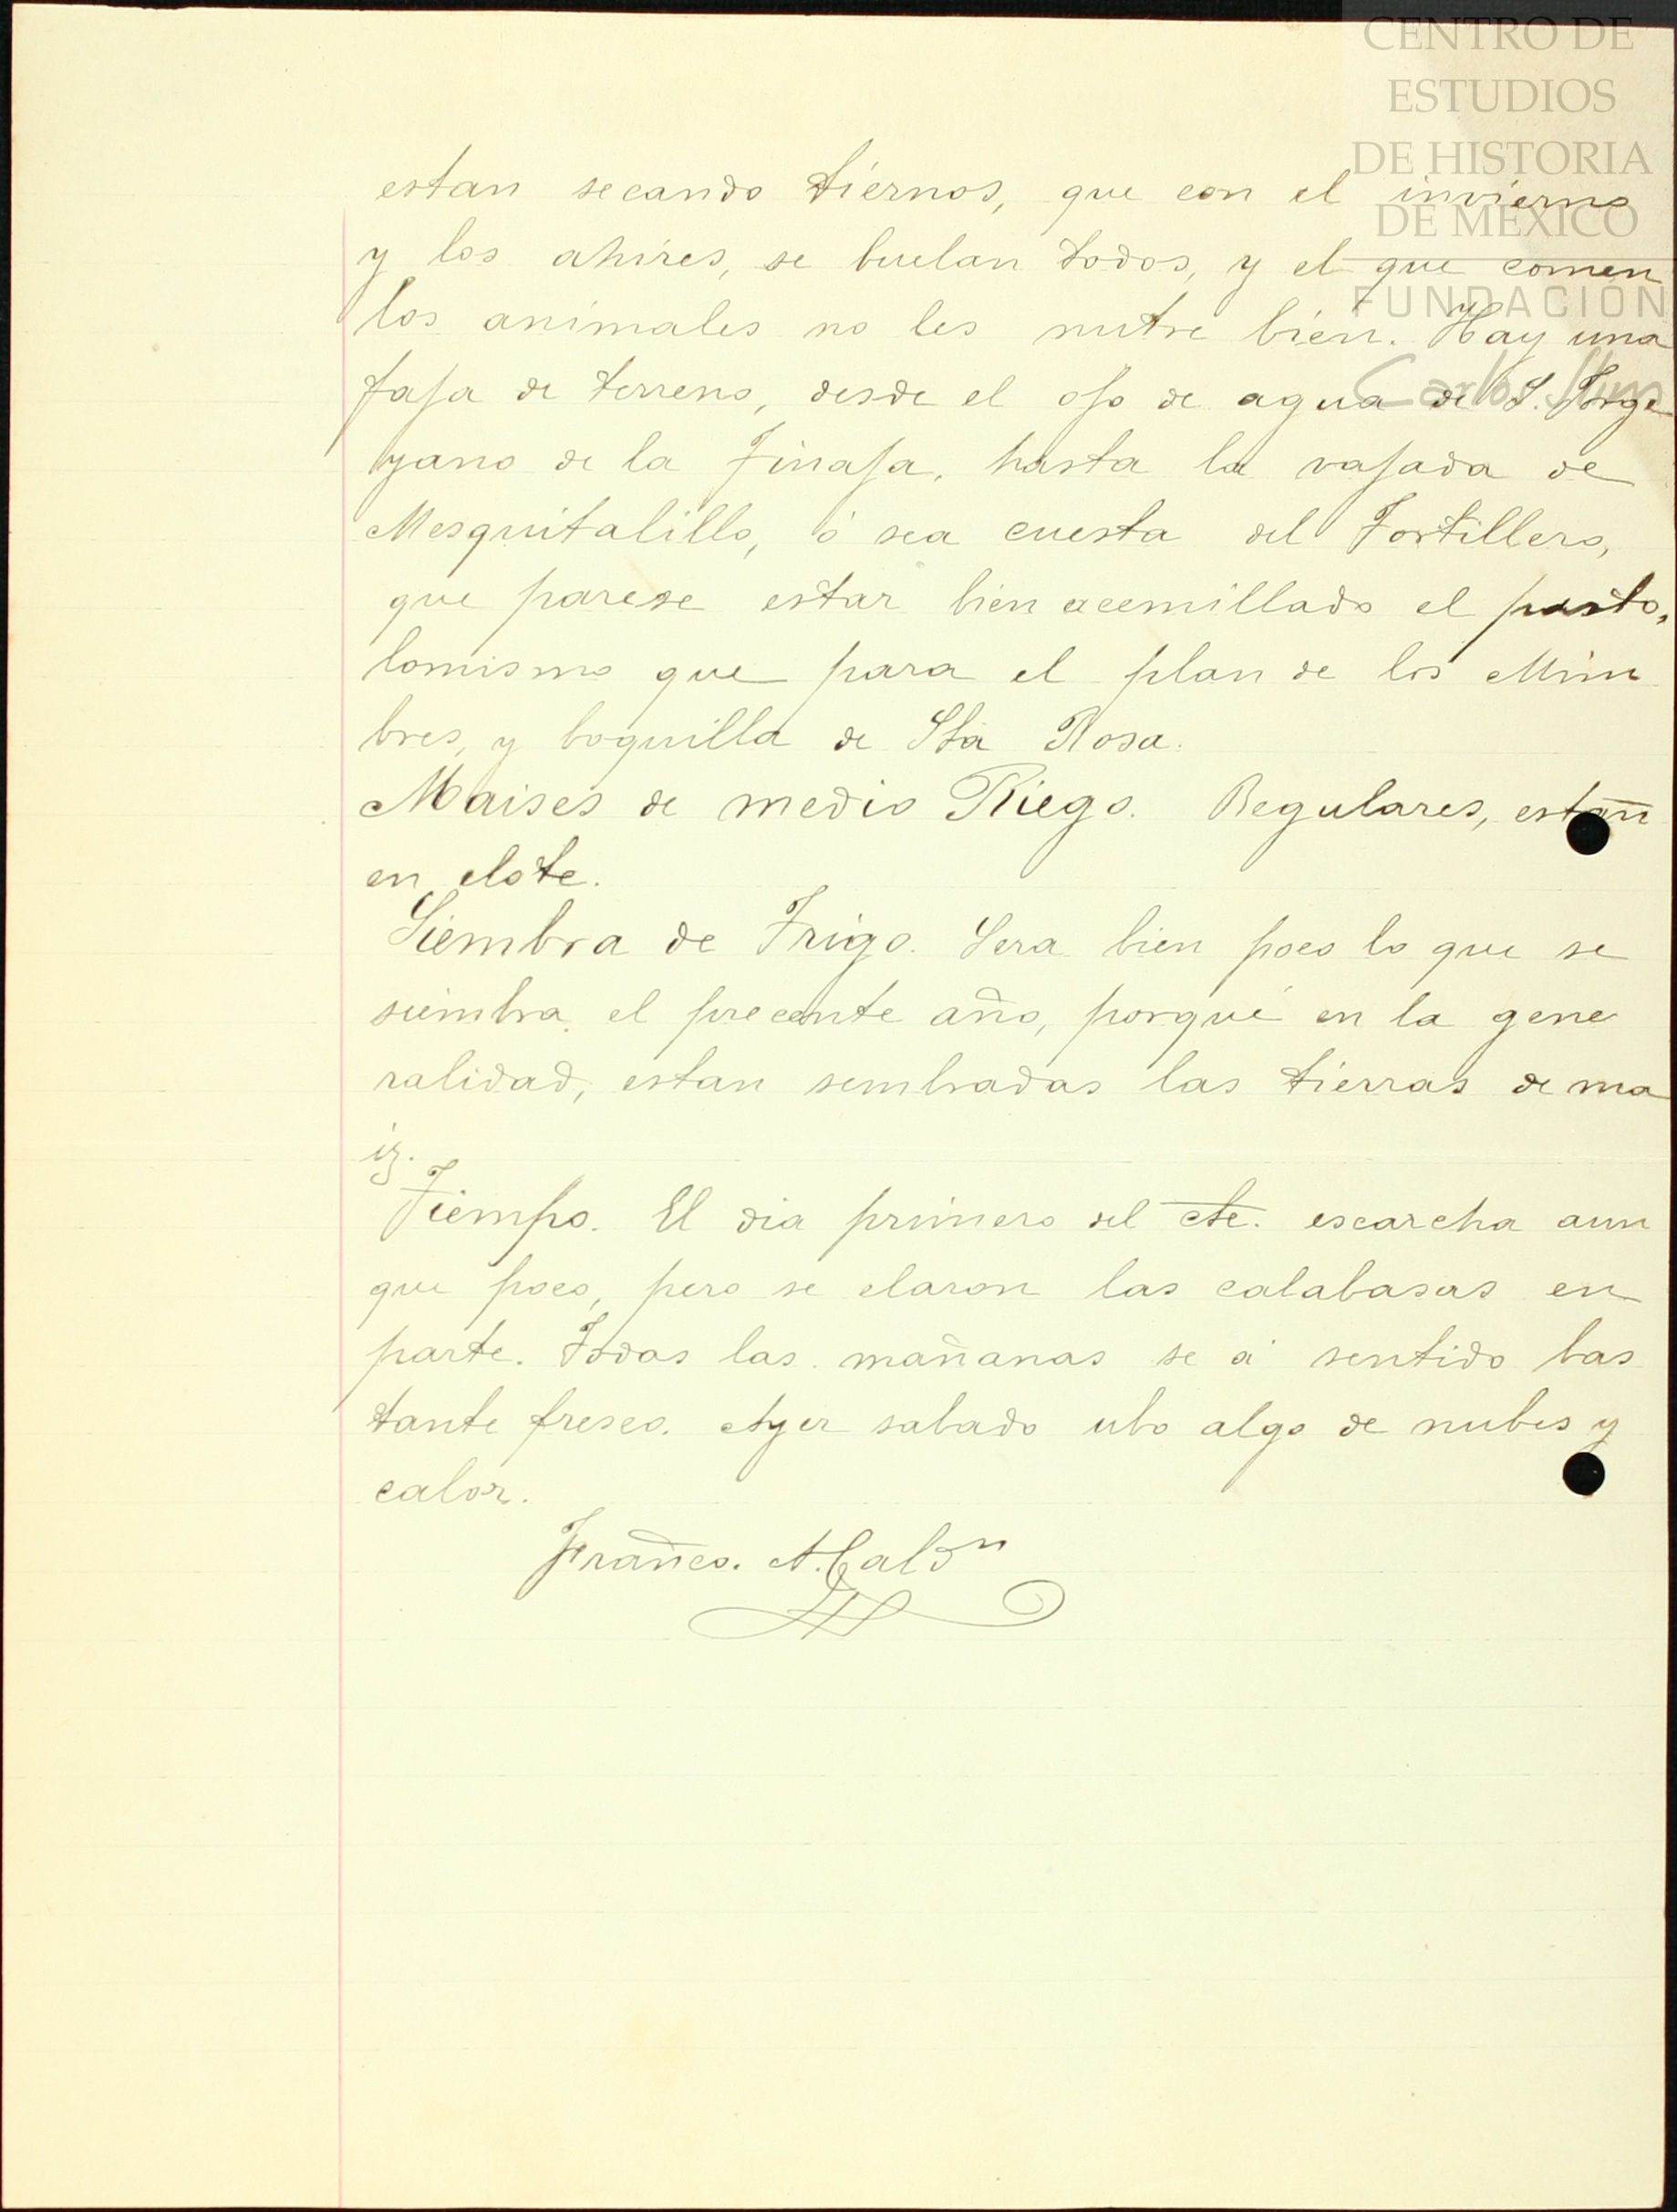 CENTRO DE
ESTUDIOS
DE HISTORIA
DE MÉXICO
FUNDACIÓN
Carlos Slim
estan secando tiernos, que con el invierno
y los ahires, se buelan todos, y el que comen
los animales no les nutre bien. Hay una
faja de terreno, desde el ojo de agua de S. Jorge
yano de la Tinaja, hasta la vajada de
Mesquitalillo, ó sea cuesta del Tortillero,
que parese estar bien acemillado el pasto,
lomismo que para el plan de los Mim
bres, y boquilla de Sta Rosa.
Maises de medio Riego. Regulares, estan
en elote.
Siembra de Trigo. Sera bien poco lo que se
siembra el precente año, porque en la gene
ralidad, estan sembradas las tierras de ma
iz.
Tiempo. El dia primero del cte. escarcha aun
que poco, pero se elaron las calabasas en
parte. Todas las mañanas se á sentido bas
tante fresco. Ayer sabado ubo algo de nubes y
calor.
Franco. A. Caldn